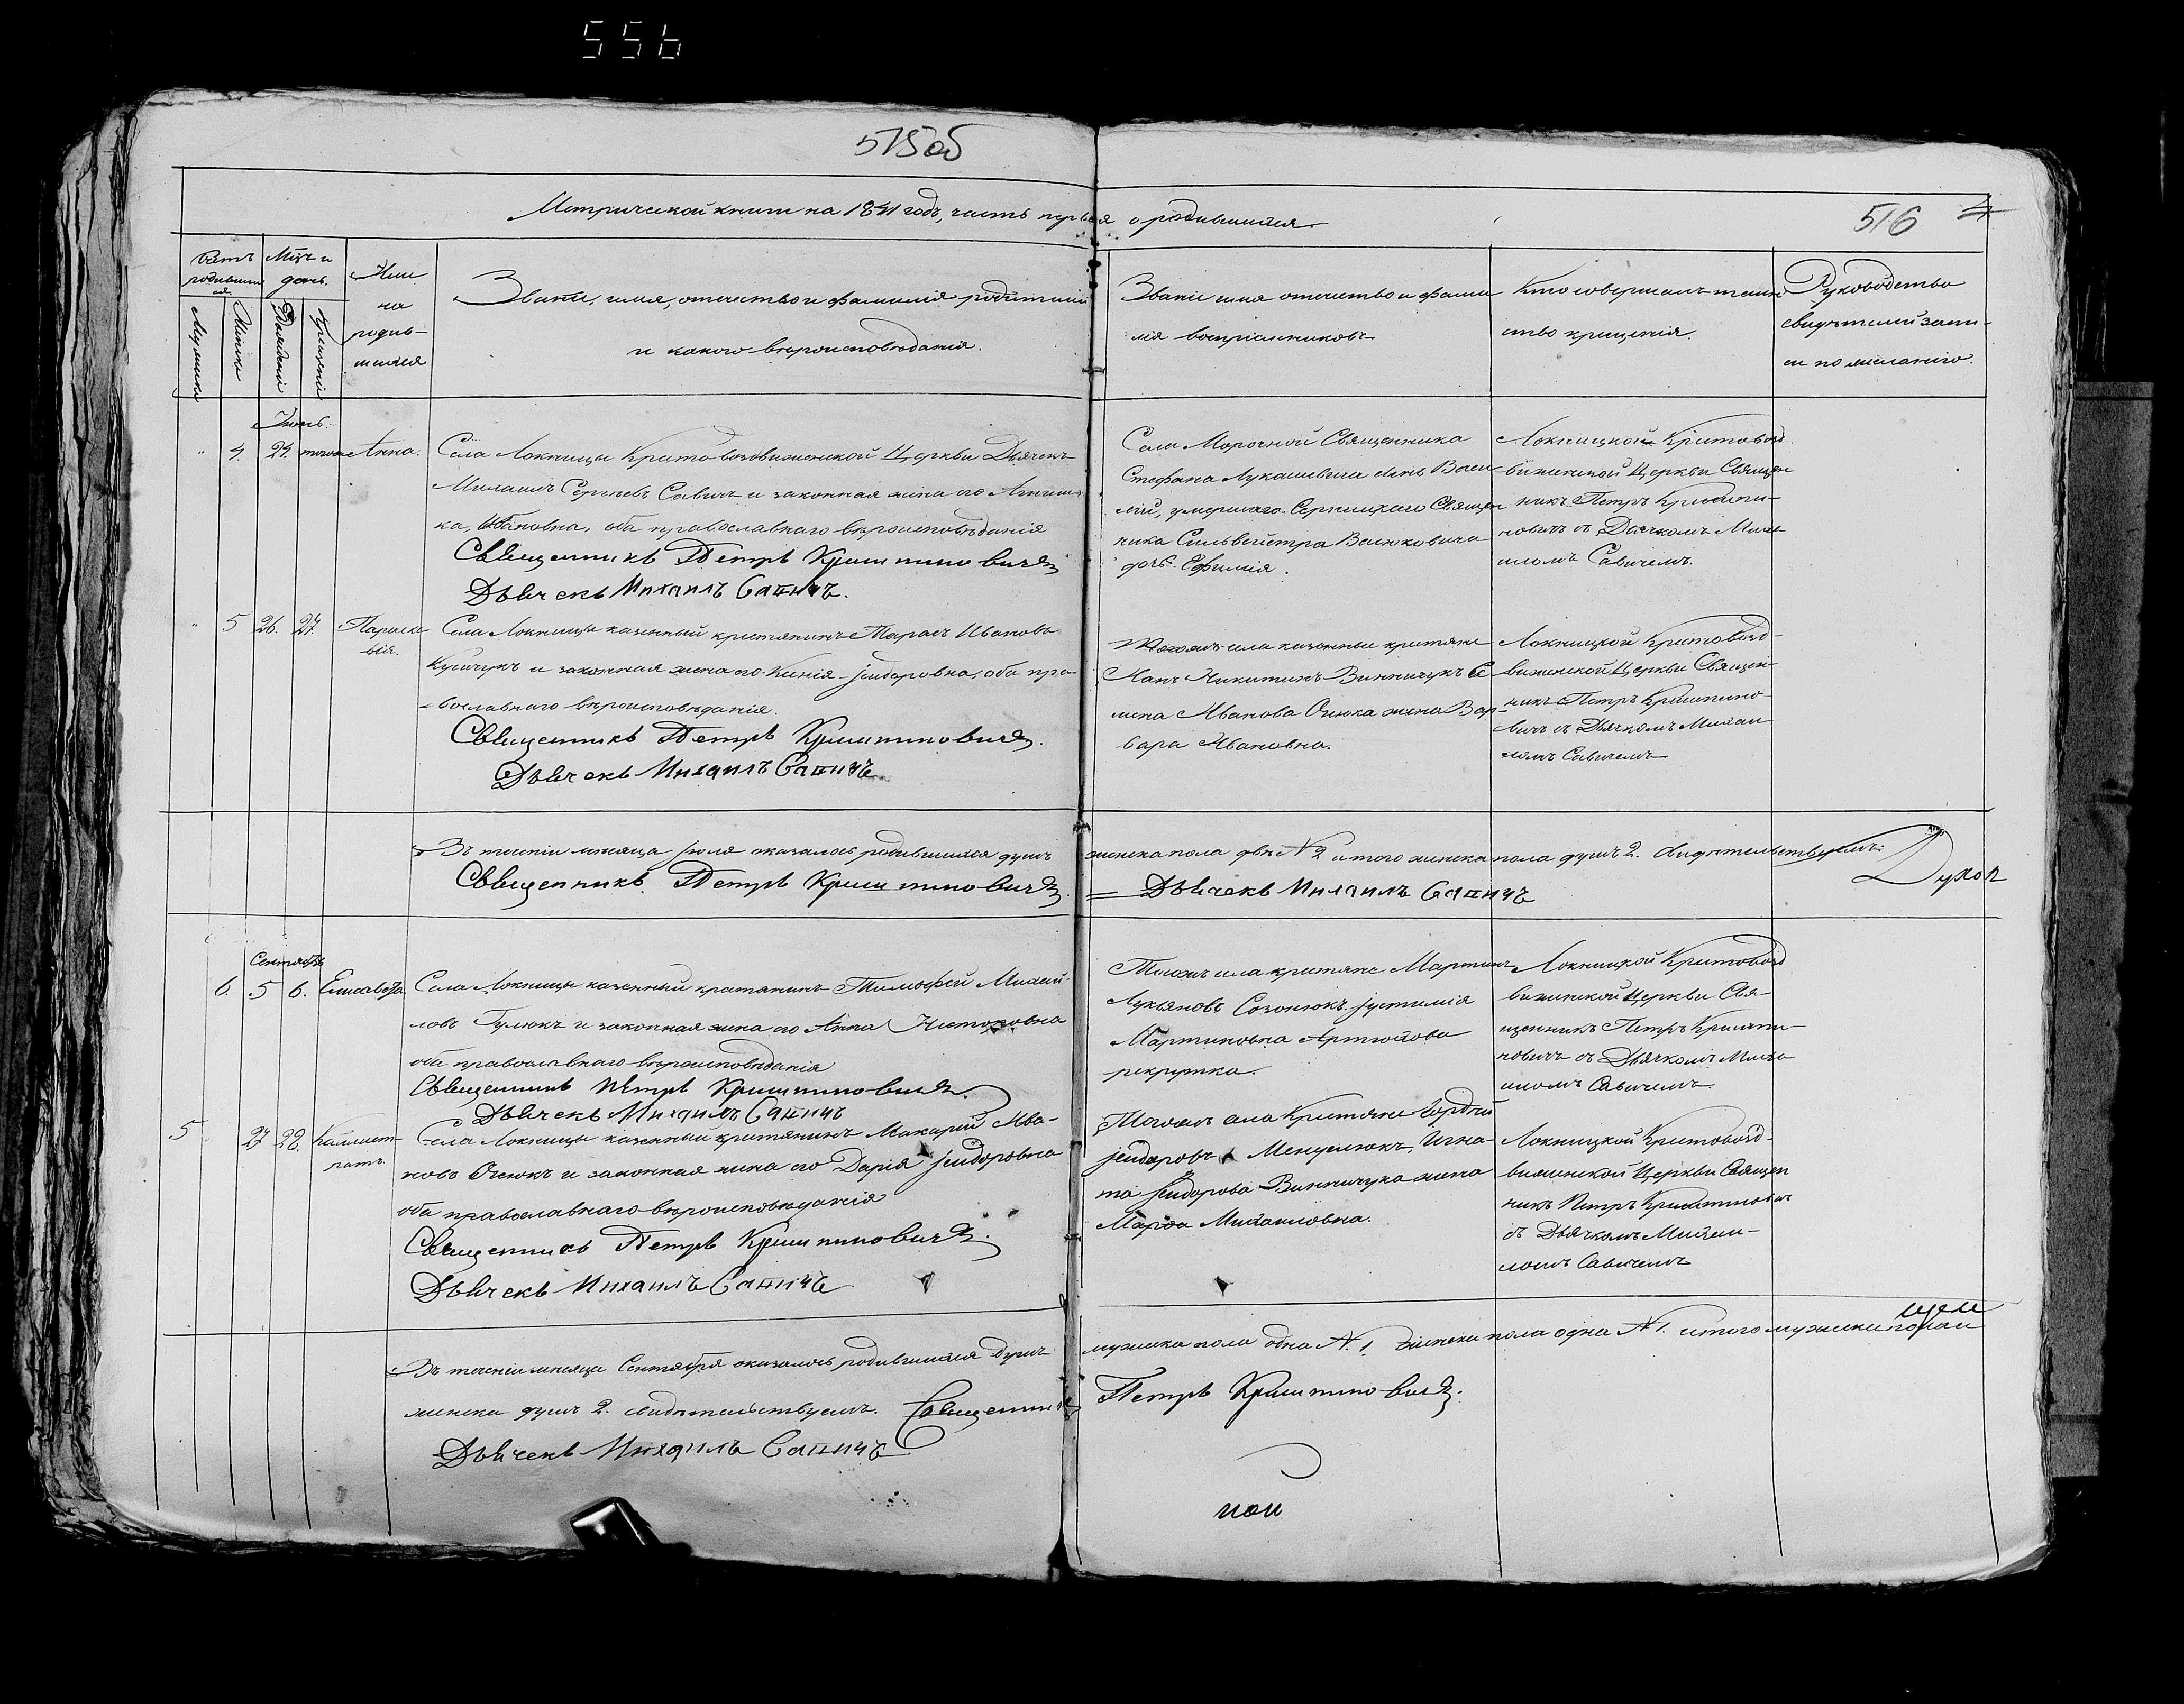 556
515об
Метрической книги на 1841 годъ, часть первая о родившихся.
516
4
Счетъ родившихся
Мѣсяцъ и день.
Имя на родившихся
Званіе, имя, отечество и фамилія родителей
и какого вѣроисповѣданія.
Званіе имя отечество и фами-
лія воспріемниковъ
Кто совершалъ таин-
ство крещенія.
Руководство
свидѣтелей запи-
си по желанію.
Мужеска
Женска
Рожденія
Крещенія
4. 24. Анна.
Села Локницы Крестовоздвиженской Церкви Дьячекъ
Михаилъ Сергѣевъ Савичъ и законная жена его
Ивановна, оба православнаго вѣроисповѣданія
Священникъ Петръ Криштиновичъ
Дьячекъ Михаилъ Савичъ.
Села Морочной Священника
Стефана Лукашевича сынъ Васи-
лій, умершаго Священ-
ника Сильвестра Васюковича
дочь Ефимія.
Локницкой Крестовозд-
виженской Церкви Священ-
никъ Петръ Криштопи-
новичъ съ Дьячкомъ Миха-
иломъ Савичемъ.
5 26. 27. Параске-
вія.
Села Локницы казенный крестьянинъ Тарасъ Ивановъ
и законная жена его Ксенія Исидоровна, оба пра-
вославнаго вѣроисповѣданія.
Священникъ Петръ Криштиновичъ.
Дьячекъ Михаилъ Савичъ
Тогожъ села казенные крестьяне
Никитинъ Винничукъ
Иванова Осиюка жена Вар-
вара Ивановна.
Локницкой Крестовозд-
виженской Церкви Священ-
никъ Петръ Криштино-
вичъ съ Дьячкомъ Михаи-
ломъ Савичемъ
Въ теченіи мѣсяца оказалось родившихся душъ женска пола двѣ N 2 итого женска пола душъ 2. свидѣтельствуемъ:
Священникъ Петръ Криштиновичъ
Дьячекъ Михаилъ Савичъ
Духов
Сентябрь
6. 5 6. Елисавета.
Села Локницы казенный крестьянинъ Тимофей Михай-
ловъ Гулюкъ и законная жена его Анна
оба православнаго вѣроисповѣданія
Священникъ Петръ Криштиновичъ.
Дьячекъ Михаилъ Савичъ
Тогожъ села крестьяне Мартинъ
Лукьяновъ Созонюкъ Іустинія
Мартиновна Артюхова
рекрутка.
Локницкой Крестовозд
виженской Церкви Свя-
щенникъ Петръ Криштопи-
новичъ съ Дьячкомъ Миха-
иломъ Савичемъ.
5 27 28. Каллист-
ратъ.
Села Локницы казенный крестьянинъ Макарій Ива-
новъ Осиюкъ и законная жена его Дарія Исидоровна
оба православнаго вѣроисповѣданія
Священникъ Петръ Криштиновичъ.
Дьячекъ Михаилъ Савичъ
Тогожъ села Крестьяне Гордѣй
Исидоровъ Менделюкъ, Игна-
та Исидорова Винничука жена
Марѳа Михаиловна.
Локницкой Крестовозд-
виженской Церкви Священ
никъ Петръ Криштиновичъ
съ Дьячкомъ Михаи-
ломъ Савичемъ
Въ теченіи мѣсяца Сентября оказалось родившихся душъ мужеска пола одна N. 1. женска пола одна N 1. итого мужеска пола и
женска душъ 2. свидѣтельствуемъ. Священникъ Петръ Криштиновичъ.
Дьячекъ Михаилъ Савичъ